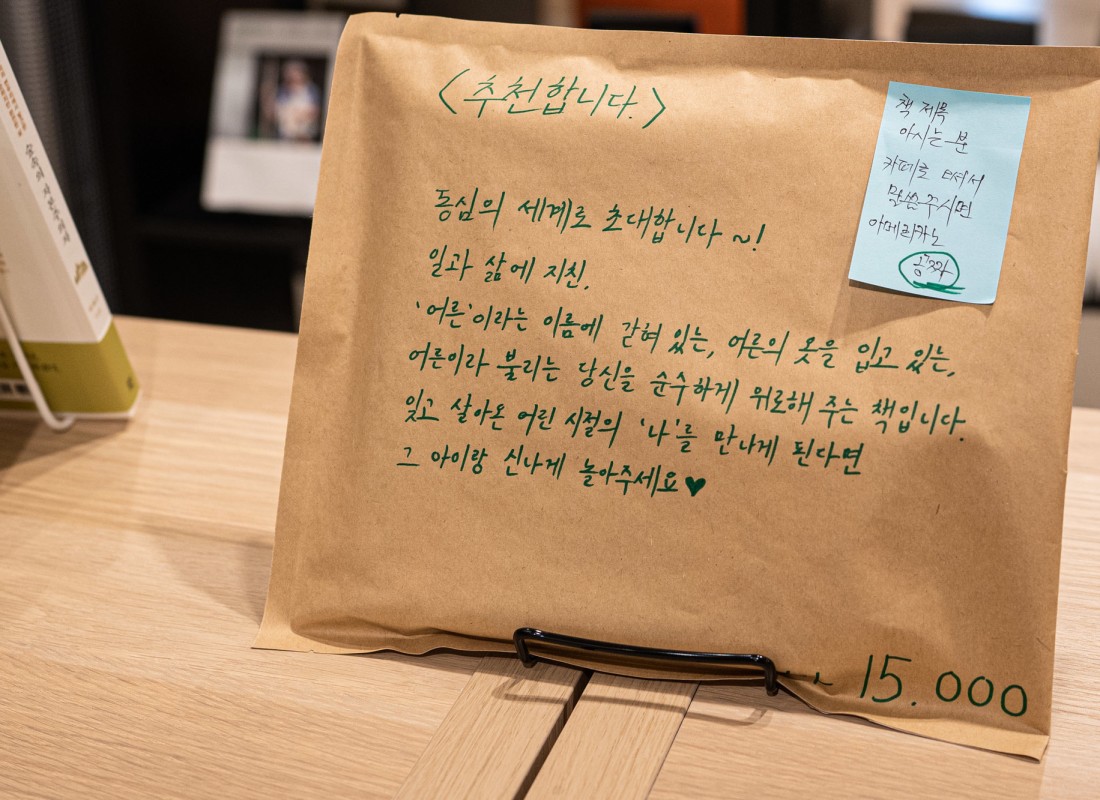 <추천합니다.>
동심의 세계로 초대합니다~!
일과 삶에 지친,
'어른'이라는 이름에 갇혀 있는, 어른의 옷을 입고 있는,
어른이라 불리는 당신을 순수하게 위로해 주는 책입니다.
잊고 살아온 어린 시절의 '나'를 만나게 된다면
그 아이랑 신나게 놀아주세요♥
15.000
책 제목
아시는 분
카페로 오셔서
말씀주시면
아메리카노
공짜